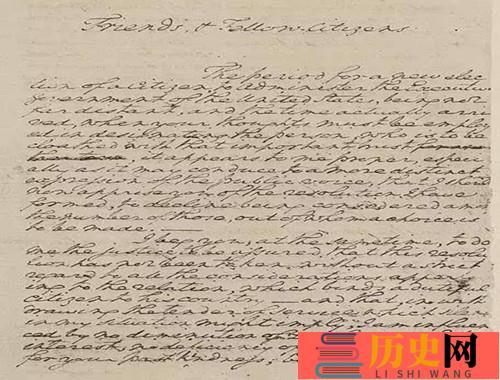 Friends, & Fellow-Citizens
The period for a new elec-
tion of a Citizen, to administer the Executive
government of the United States, being not
far distant, and the time actually arri-
ved, when your thoughts must be employ-
ed in designating the person, who is to be
cloathed with that important trust
it appears to me proper, especi-
ally as it may conduce to a more distinct
expression of the public voice, that I should
now apprise you of the resolution I have
formed, to decline being considered among
the number of those, out of whom a choice is
to be made.
I beg you, at the same time, to do
me the justice to be assured, that this resolu-
tion has not been taken, without a strict
regard to all the considerations appertain-
ing to the relation, which binds a dutiful
citizen to his country — and that, in with-
drawing the tender of service which silence
in my situation might imply,
ced by no diminution
interest, no deficiency
for your past kindness;
历史网
LI SHI WANG